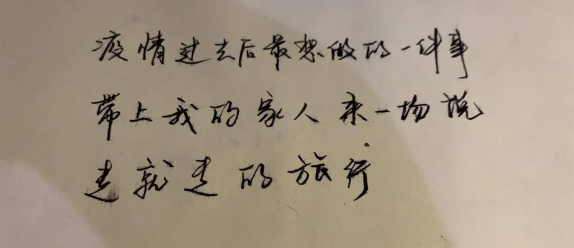 疫情过去后最想做的一件事
带上我的家人来一场说
走就走的旅行